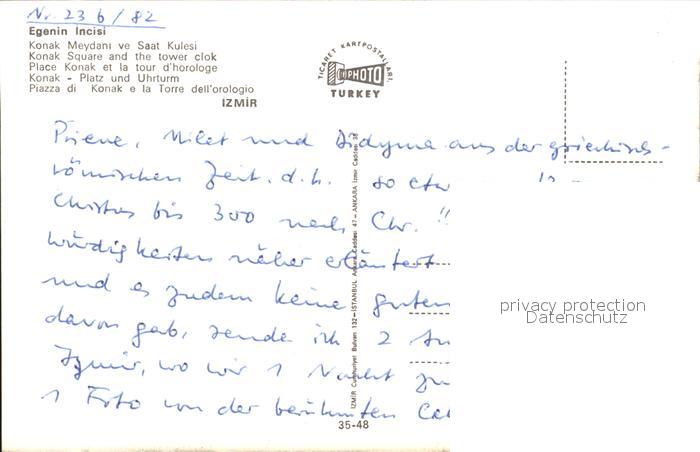 Nr. 236/82
Egenin Incisi
Konak Meydanı ve Saat Kulesi
Konak Square and the tower clok
Place Konak et la tour d'horologe
Konak - Platz und Uhrturm
Piazza di Konak e la Torre dell'orologio
IZMİR
TICARET KARTPOSTALLARI,
PHOTO
TURKEY
Priene, Milet und Didyma aus der griechisch-
römischen Zeit. d.h. so etw
Christus bis 300 nach Chr.
würdigkeiten näher erläutert
und es zudem keine guten
davon gab, sende ich 2
Izmir, wo wir 1 Nacht
1 Foto von der berühmten
IZMİR Cumhuriyet Bulvarı 132-İSTANBUL Ankara Caddesi 47- ANKARA İzmir Caddesi
35-48
privacy protection
Datenschutz